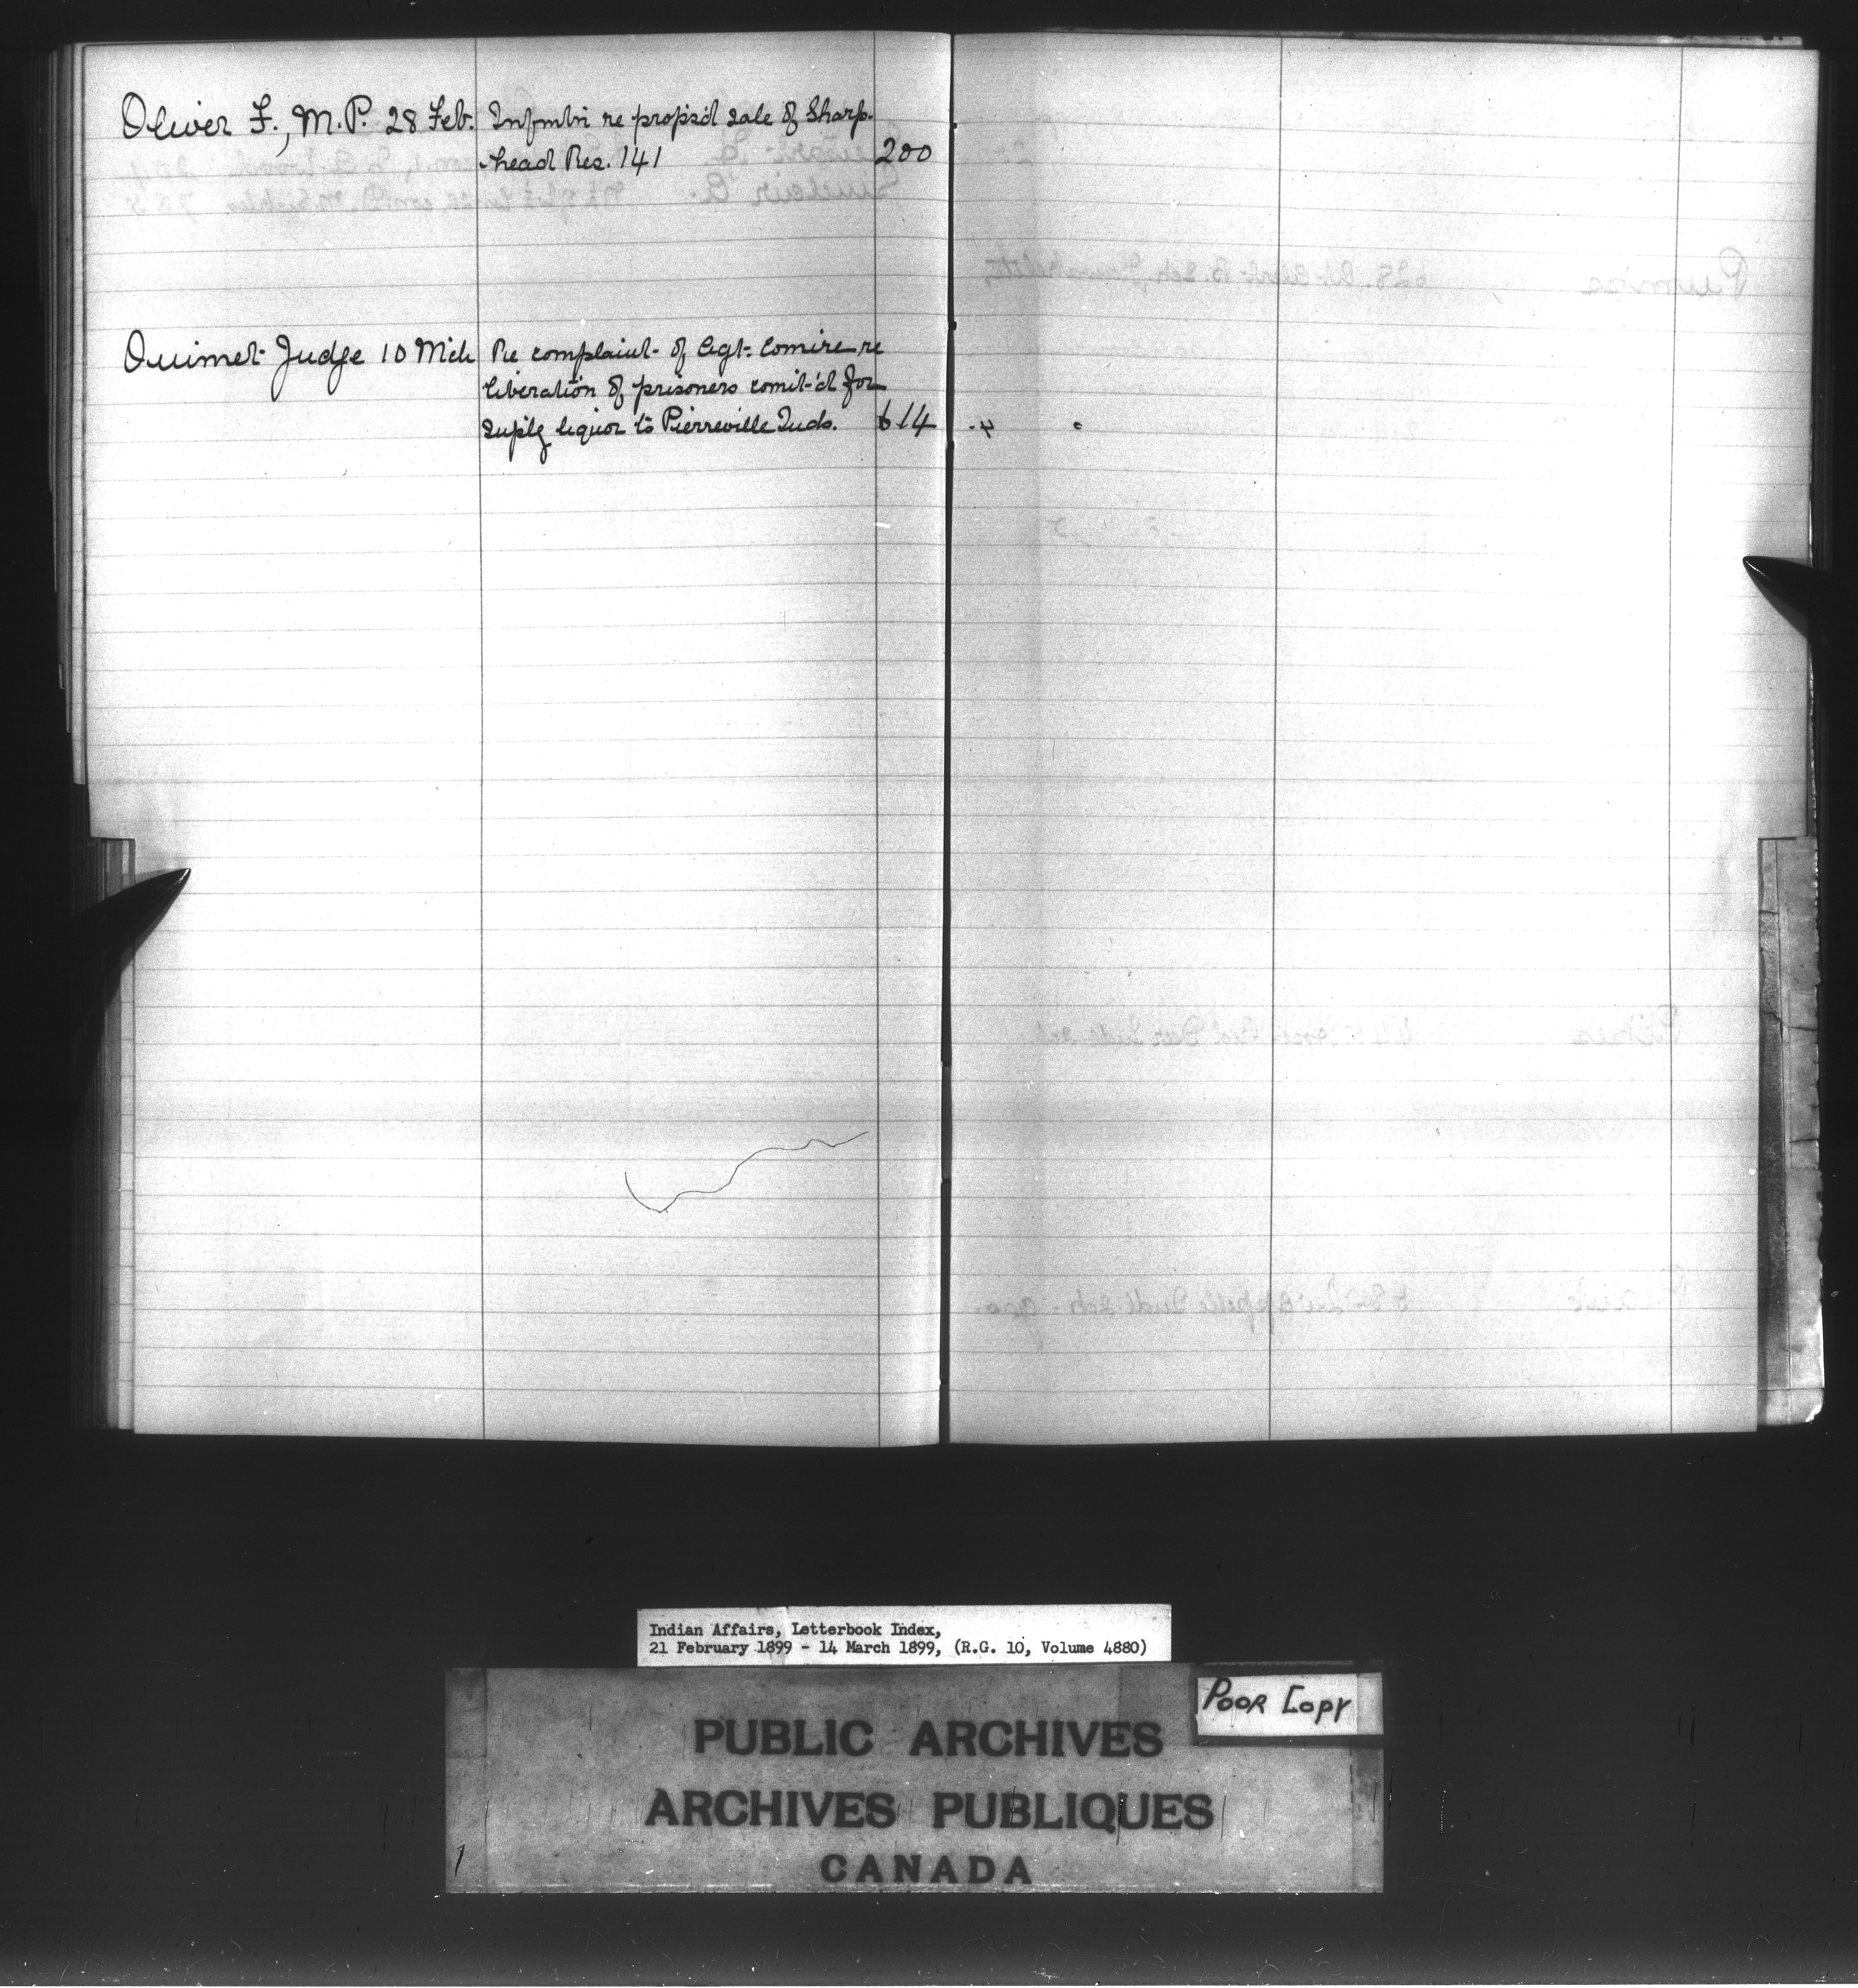 Oliver F., M.P. 28 Feb. Infmtn re propos'd sale of Sharp-
head Res. 141 200
Ouimet Judge 10 Mch Re complaint of Agt. Comire re
liberation of prisoners comit'd for
suplg liquor to Pierreville Inds. 614
Indian Affairs, Letterbook Index,
21 February 1899 - 14 March 1899, (R.G. 10, Volume 4880)
POOR COPY
PUBLIC ARCHIVES
ARCHIVES PUBLIQUES
CANADA